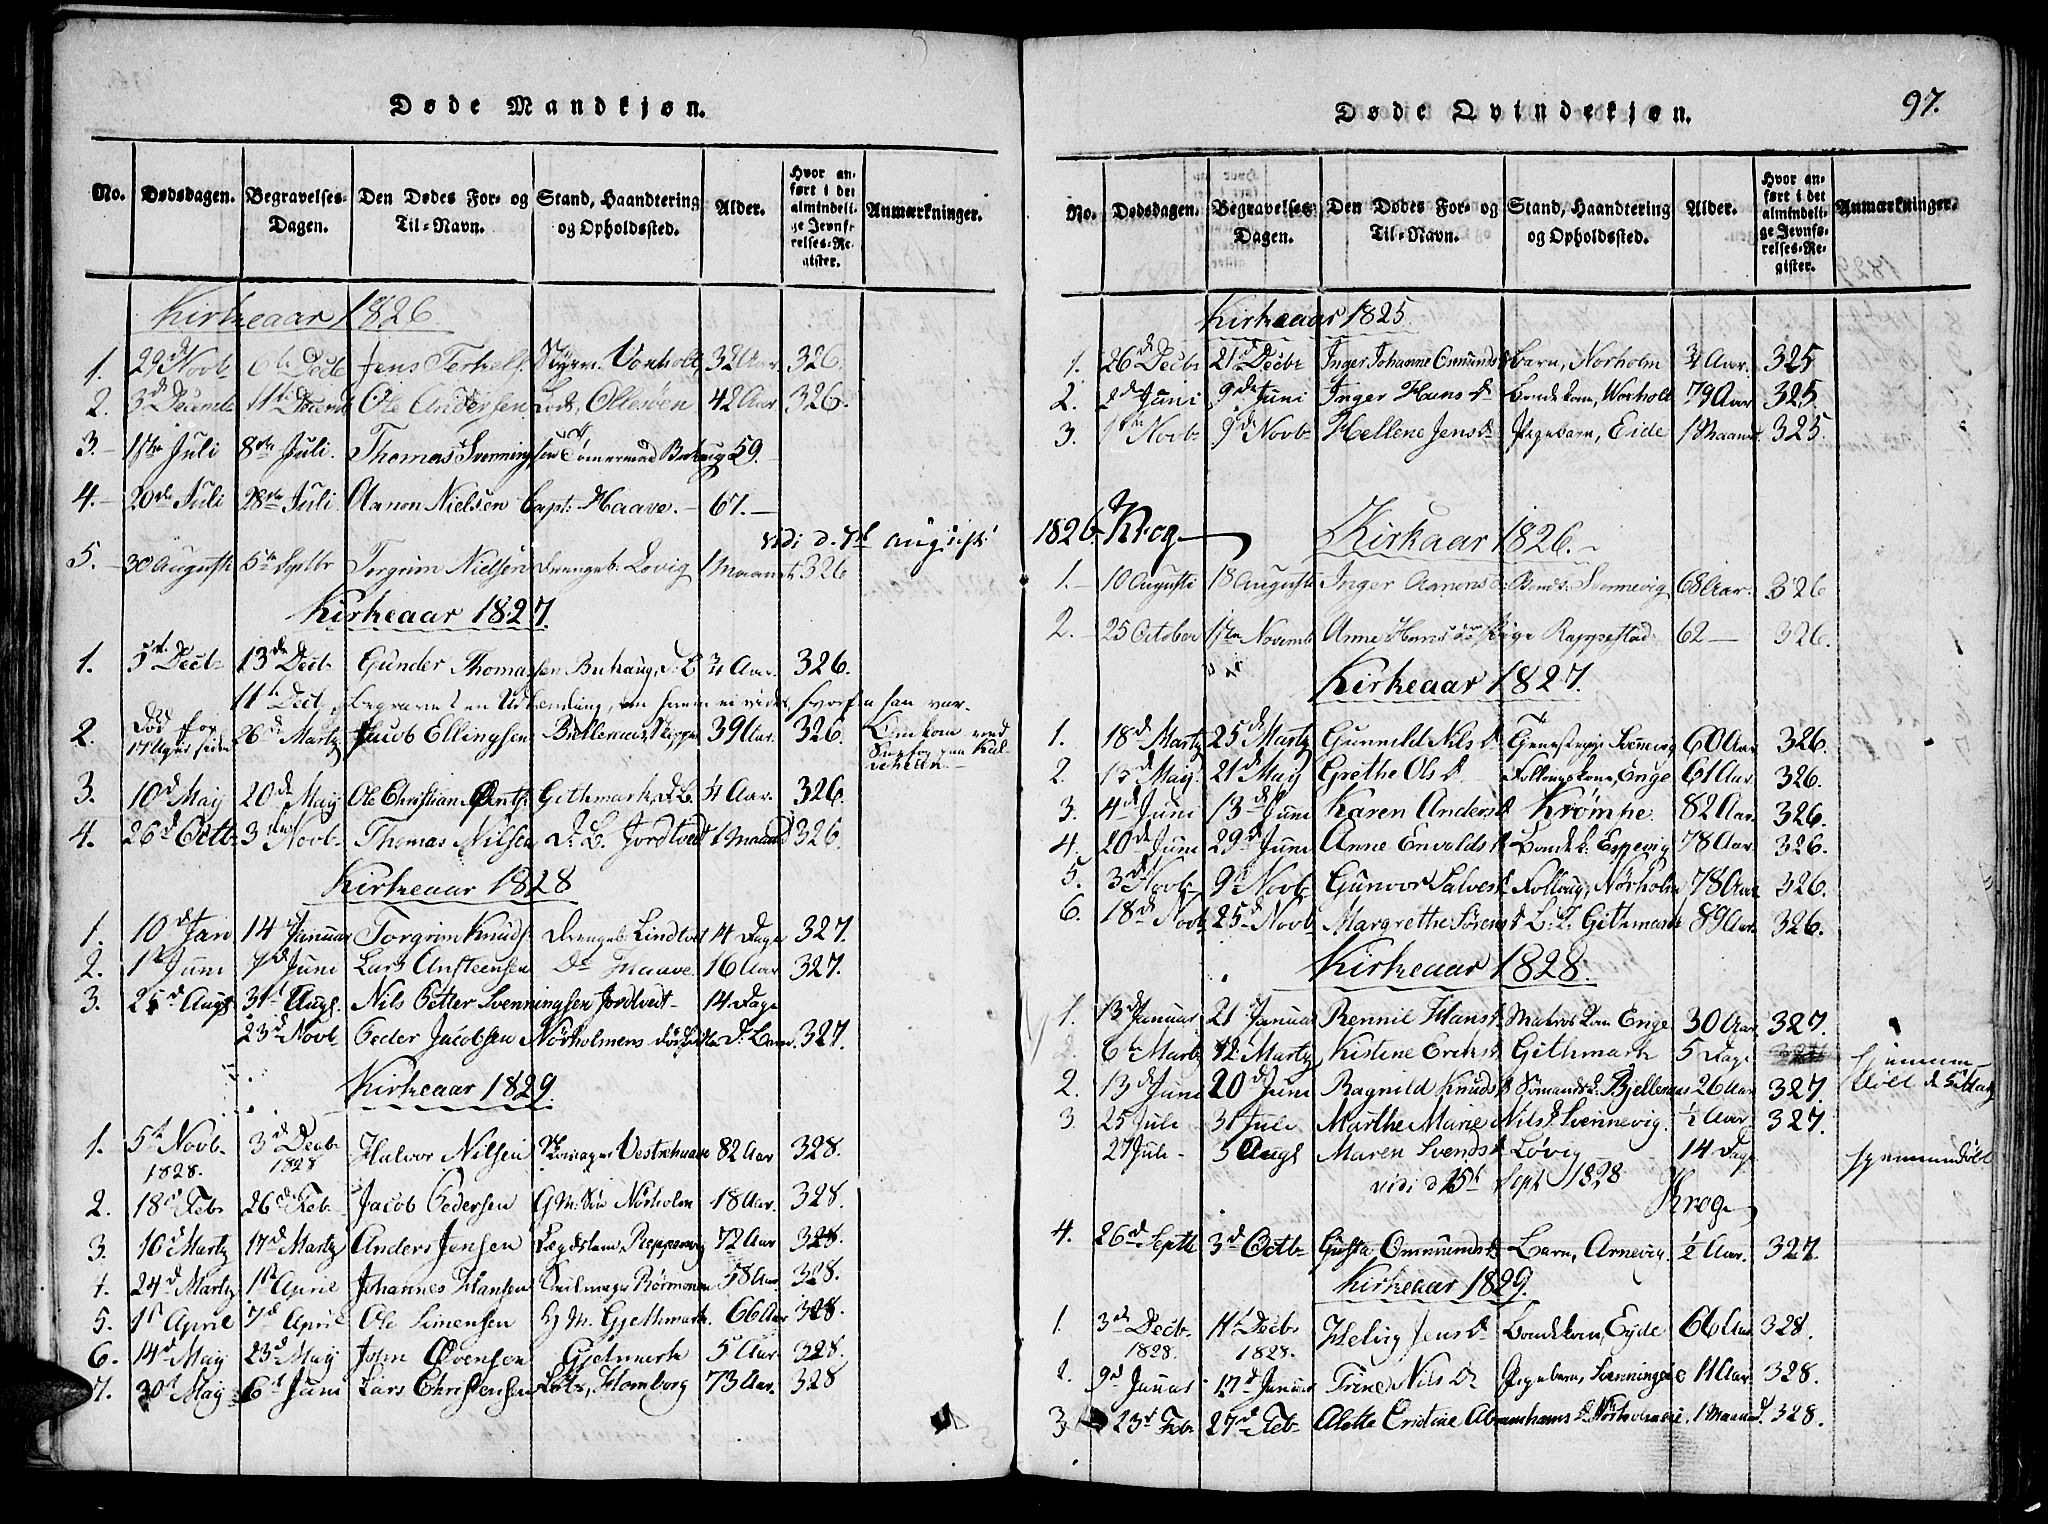 Døde Mandkjøn.
No. Dødsdagen. Begravelses-Dagen. Den Dødes For- og Til-Navn. Stand, Haandtering og Opholdssted. Alder. Hvor anført i det almindelige Jevnførelses-Register. Anmærkninger.
Kirkeaar 1826
1. 29d Novb. 6te Decb Jens Terkels. Styrm. Voxholt, 32 Aar 326.
2. 3d Decemb 11te Decemb Ole Andersen Lods, Ollesöen 42 Aar 326.
3. 1ste Juli 8de Juli. Thomas Svenningsen Tömermand 59.
4. 20de Juli 28de Juli Aanon Nielsen Capt: Haave. 67.
vidi d. 7d August
5. 30 August 5te Septbr Torgrim Nielsen Drengeb. Lovig 1 Maanet 326
Kirkeaar 1827.
1. 5t Decbr 13de Decb Gunder Thomassen Buhaug, D: B. 3/4 Aar. 326.
11te Decb, begravet en Udlending, om ham ei vides, hvorfra han var.
2. 26d Martz Jacob Ellingsen Bielleraas, Skipper 39 Aar. 326.
3. 10d May 20de May Ole Christian Örnts: Githmark, D.B. 4 Aar. 326.
4. 26d Octb. 3die Novb. Thomas Nilsen D. B. Jordtvedt 1 Maaned 326.
Kirkeaar 1828
1. 10d Jan 14d Januar Torgrim Knuds. Drengeb. Lindtvet 14 Dage 327.
2. 1st Juni 7d Juni Lars Ansteensen Do Haave. 16 Aar 327.
3. 25d Augst 31t Augst. Nils Petter Svenningsen Jordtvedt 14 Dage
23d Novb. Peder Jacobsen Nörholmens dödfödte D: Barn. 327.
Kirkeaar 1829.
1. 5te Novb. 1828. 3d Decbr 1828 Halvor Nilsen Vestrehaave 82 Aar 328.
2. 18d Feb 26d Feb. Jacob Pedersen G.M. Sön Nörholm 18 Aar. 328.
3. 10d Martz 17d Martz Anders Jensen Legdslem, Reppevig 72 Aar 328.
4. 24d Martz 1st April Johannes Hansen Seilmager Börmonen 58 Aar. 328.
5. 1st April 7d April Ole Simensen G. M. Gjethmark. 66 Aar 328.
6. 14d May 23d May John Övensen Gjetmark 5 Aar. 328.
7. 30d May 6t Juni Lars Christensen Lods, Homborg 73 Aar. 328
97.
Døde Qvindekjøn.
No. Dødsdagen. Begravelses Dagen. Den Dødes For- og Til-Navn. Stand, Haandtering og Opholdssted. Alder. Hvor anført i det almindelige Jevnførelses-Register. Anmærkninger.
Kirkeaar 1825
1. 26d Decbr 21d Decbr Inger Johanne Osmunds D Barn, Norholm 3/4 Aar. 325
2. 2d Juni 9de Juni Inger Hans D Bondekone, Woxholt 79 Aar 325.
3. 1ste Novb. 9d Novb. Hellene Jens D Pigebarn, Eide 1 Maaned. 325.
1826. Krog
Kirkaar 1826.
1. 10 Augusti 18 Augusti Inger Aanons D. Bonds. Svennevig 68 Aar. 326
2. 25 October 1ste Novemb Anne Hans D Pige Rappestad 62 326.
Kirkeaar 1827.
1. 18d Martz 25d Martz Gunnild Nils D Svennevig 60 Aar 326.
2. 13d May. 21d May Grethe Ols D Follougskone, Enge 61 Aar. 326.
3. 4d Juni 13d Juni Karen Anders D Krömke 82 Aar. 326.
4. 20d Juni 29d Juni Anne Envolds D Bondek. Espevig 78 Aar. 326.
5. 3d Novb. 9d Novb. Gunvor Salves D Follaug, Nörholm 78 Aar 326.
6. 18d Novb 25d Novb. Margrethe Sörens D L. L. Githmark 89 Aar. 326.
Kirkeaar 1828.
1. 13d Januar 21d Januar Rennie Hans D. Matroskone Enge 30 Aar. 327.
2. 6te Martz 12d Martz Kistine Eriks D Githmark 5 Dage
2. 13d Juni 20d Juni Ragnild Knuds D Sömandsk. Bjelleraas 26 Aar 327.
3. 25 Juli 31 Juli Marthe Marie Nils D. Svennevig. 1/2 Aar. 327.
27 Juli 5 Augst Maren Svends D Lövig 14 Dage
vidi d 15t Sept 1828
Krog
4. 26d Septb 3d Octb. Gusta Ommunds D Barn, Arnevig. 1/2 Aar. 327.
Kirkeaar 1829.
1. 3d Decb. 1828. 11t Decbr 1828. Helvig Jens D Bondekone, Eyde 66 Aar 328.
2. 9d Januar 17d Januar Trine Nils D. Pigebarn, Svenningöe 11 Aar 328.
3. 23d Feb. 27d Feb. Alette Cristine Abrahams D Nörholmeie. 1 Maaned. 328.